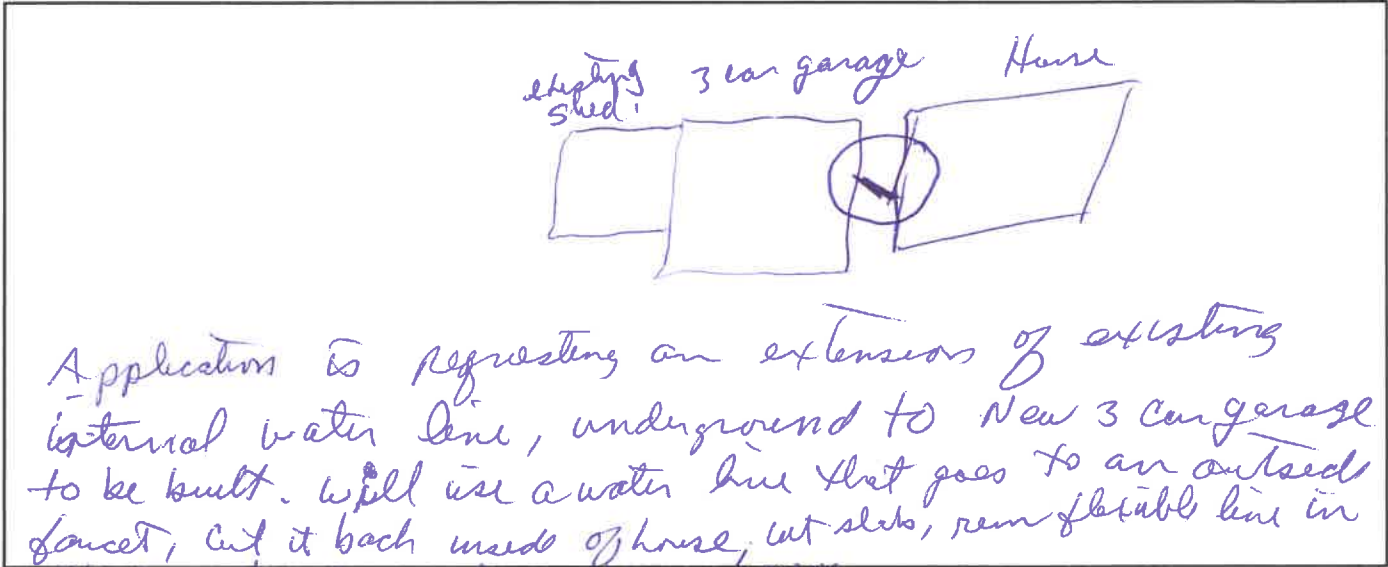 existing 3 car garage House
shed.
Application is requesting an extension of existing
internal water line, underground to New 3 Car garage
to be built. Will use a water line that goes to an outside
faucet, Cut it back inside of house, cut slab, run flexible line in